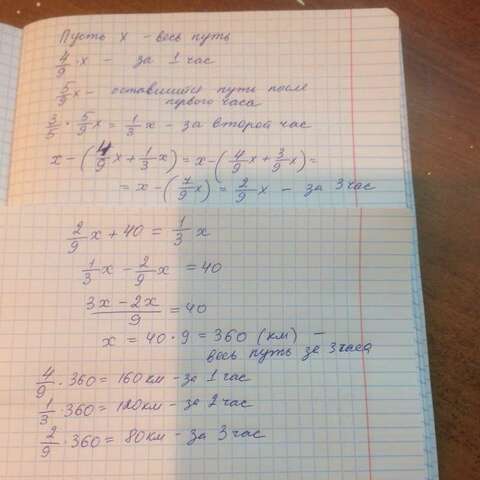 Пусть x - весь путь
4/9 · x - за 1 час
5/9 x - оставшийся путь после
первого часа
3/5 · 5/9 x = 1/3 x - за второй час
x - (4/9 x + 1/3 x) = x - (4/9 x + 3/9 x) =
= x - (7/9 x) = 2/9 x - за 3 час
2/9 x + 40 = 1/3 x
1/3 x - 2/9 x = 40
(3x - 2x)/9 = 40
x = 40 · 9 = 360 (км) -
весь путь зе 3 часа
4/9 · 360 = 160 км - за 1 час
1/3 · 360 = 120 км - за 2 час
2/9 · 360 = 80 км - за 3 час